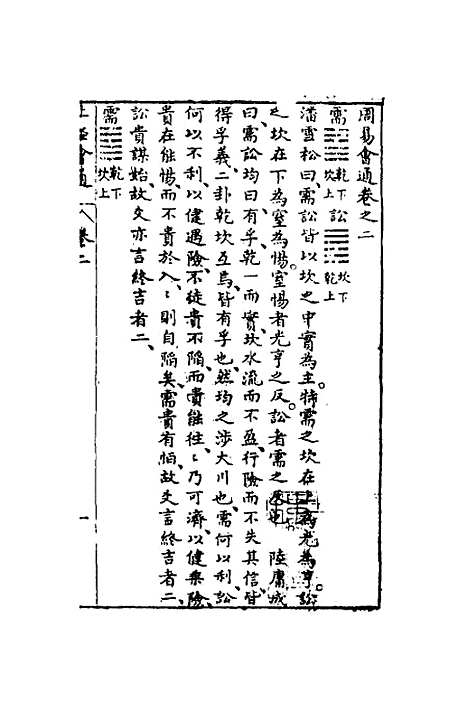 周易會通卷之二
需 乾下坎上 訟 坎下乾上
潘雪松曰需訟皆以坎之中實為主特需之坎在上為光為亨訟
之坎在下為窒為惕窒惕者光亨之反訟者需之反也 陸庸成
曰需訟均曰有孚乾一而實坎水流而不盈行險而不失其信皆
得孚義二卦乾坎互焉皆有孚也然均之涉大川也需何以利訟
何以不利以健遇險不徒貴不陷而貴能往往乃可濟以健乘險
貴在能惕而不貴於入入則自陷矣需貴有恒故爻言終吉者二
訟貴謀始故爻亦言終吉者二
需 乾下坎上
會通 卷二
一